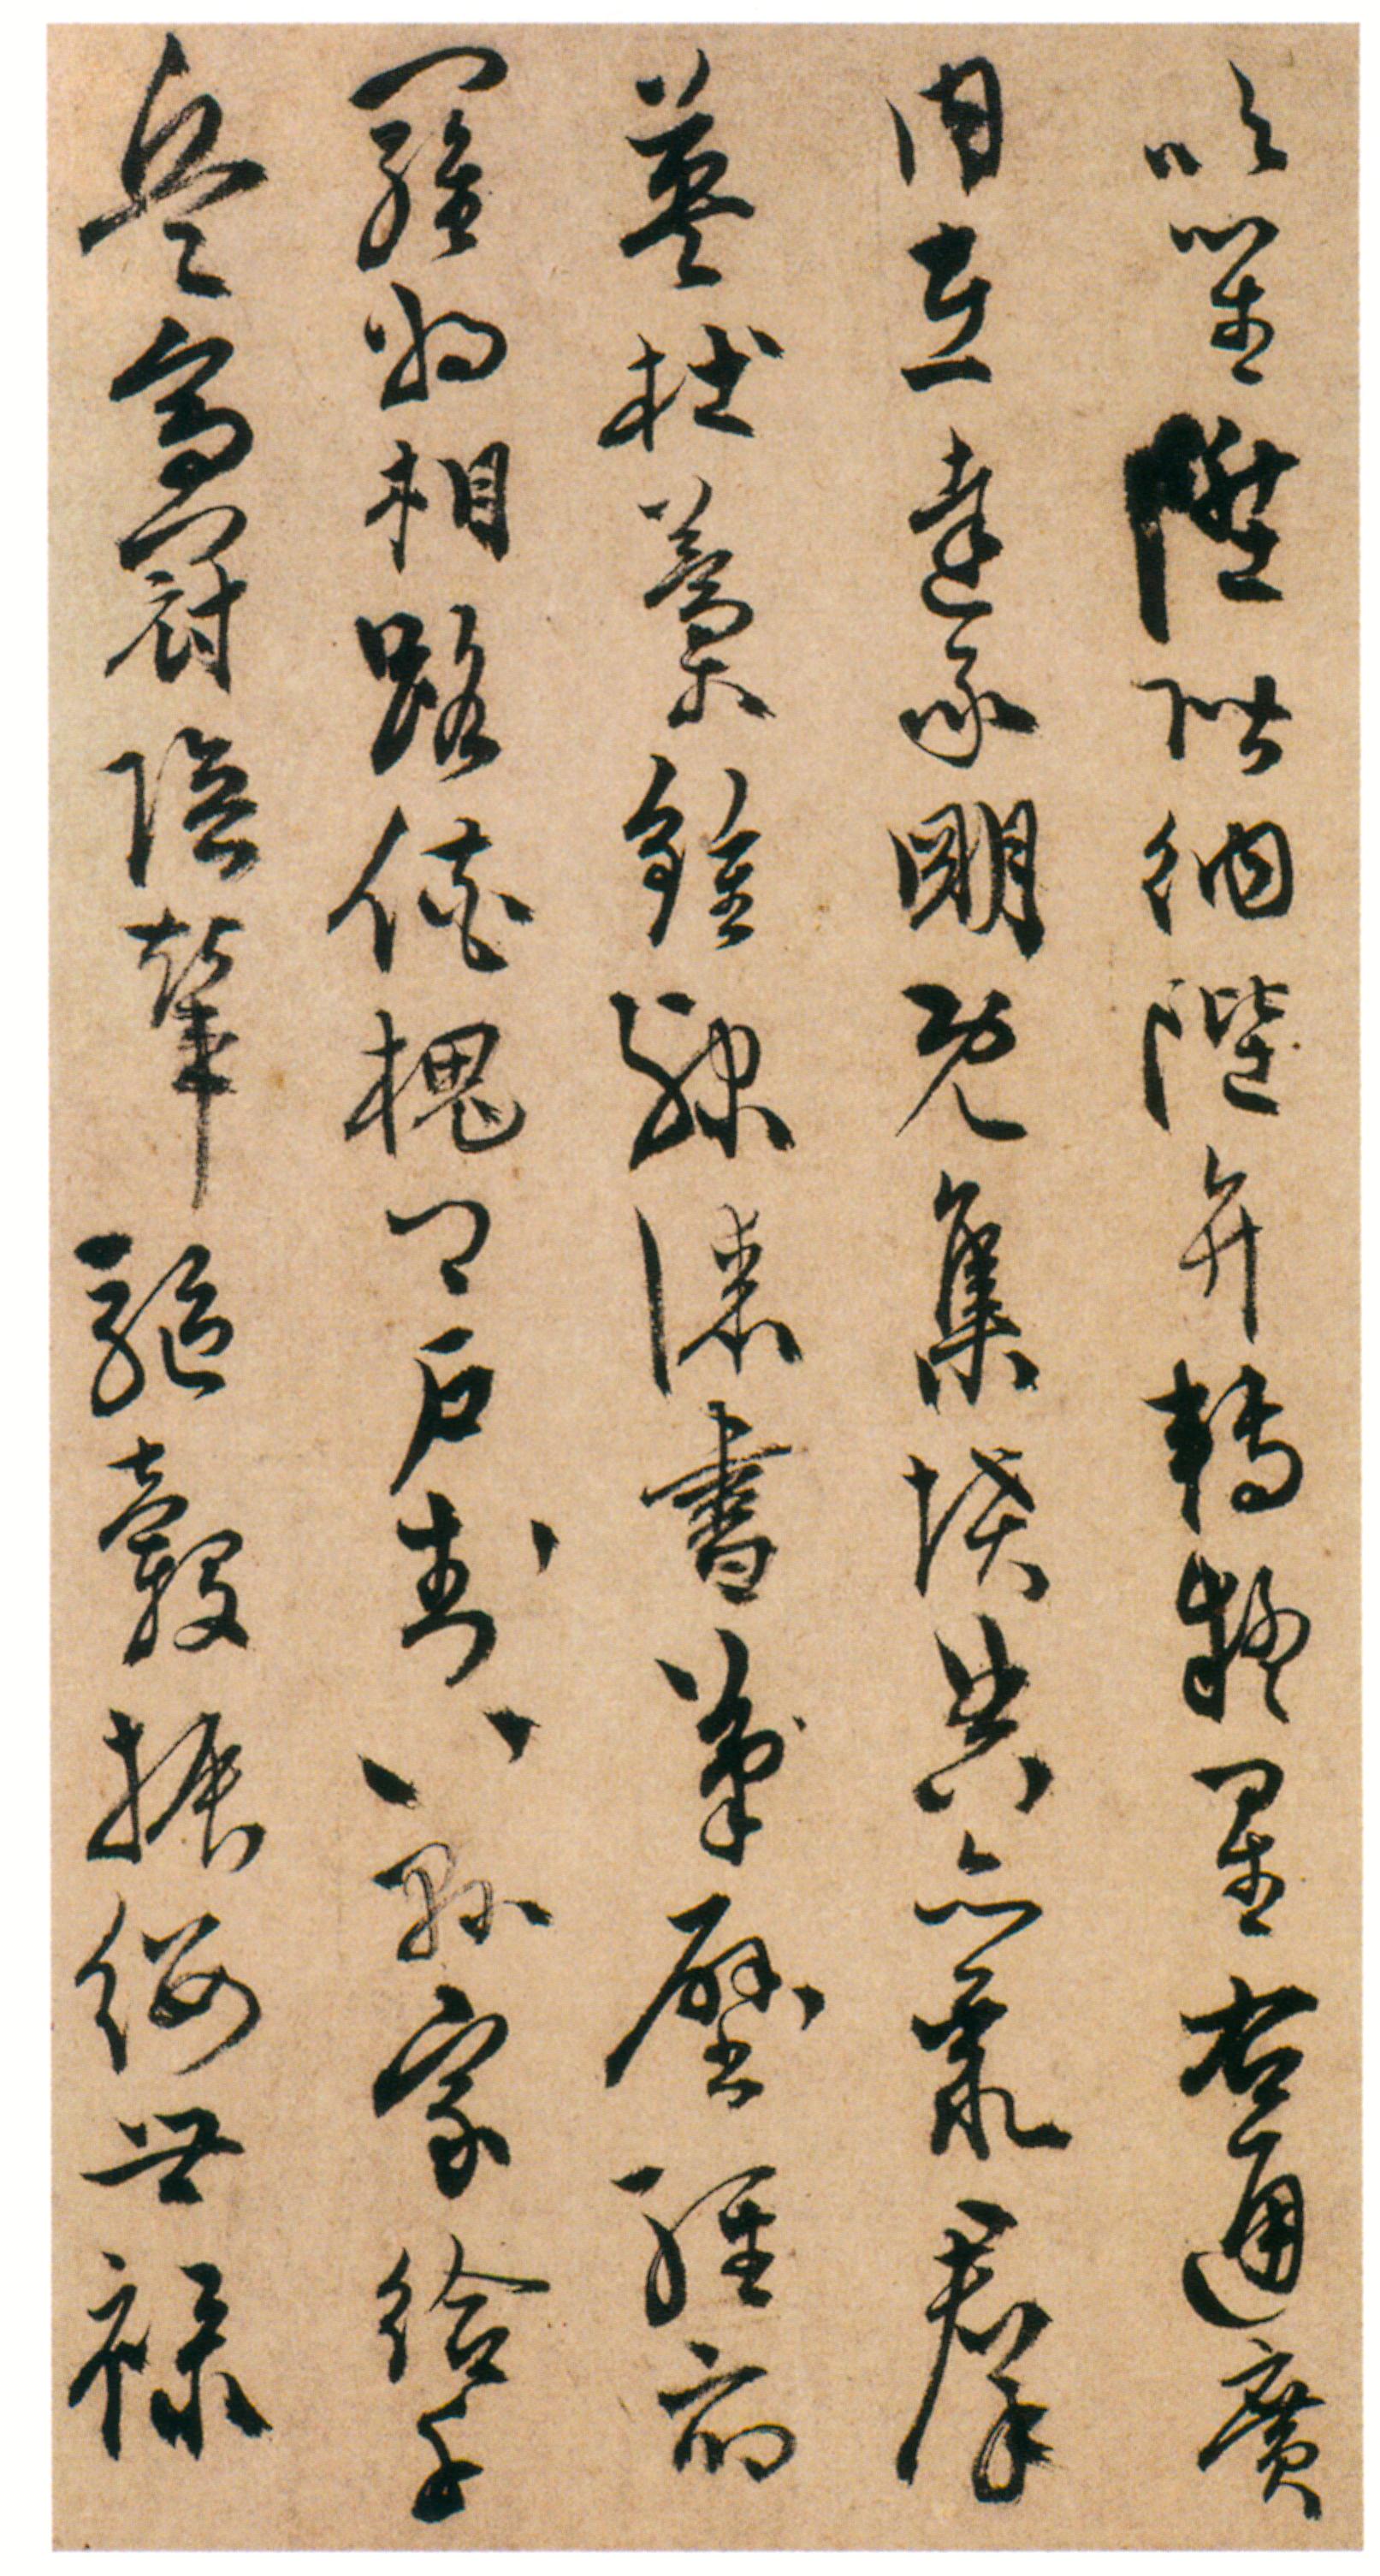 吹笙陞階納陛弁轉疑星右通廣
內左達承明既集墳典亦聚羣
英杜稾鍾隸漆書壁經府
羅將相路俠槐卿戶封八縣家給千
兵高冠陪輦驅轂振纓世祿